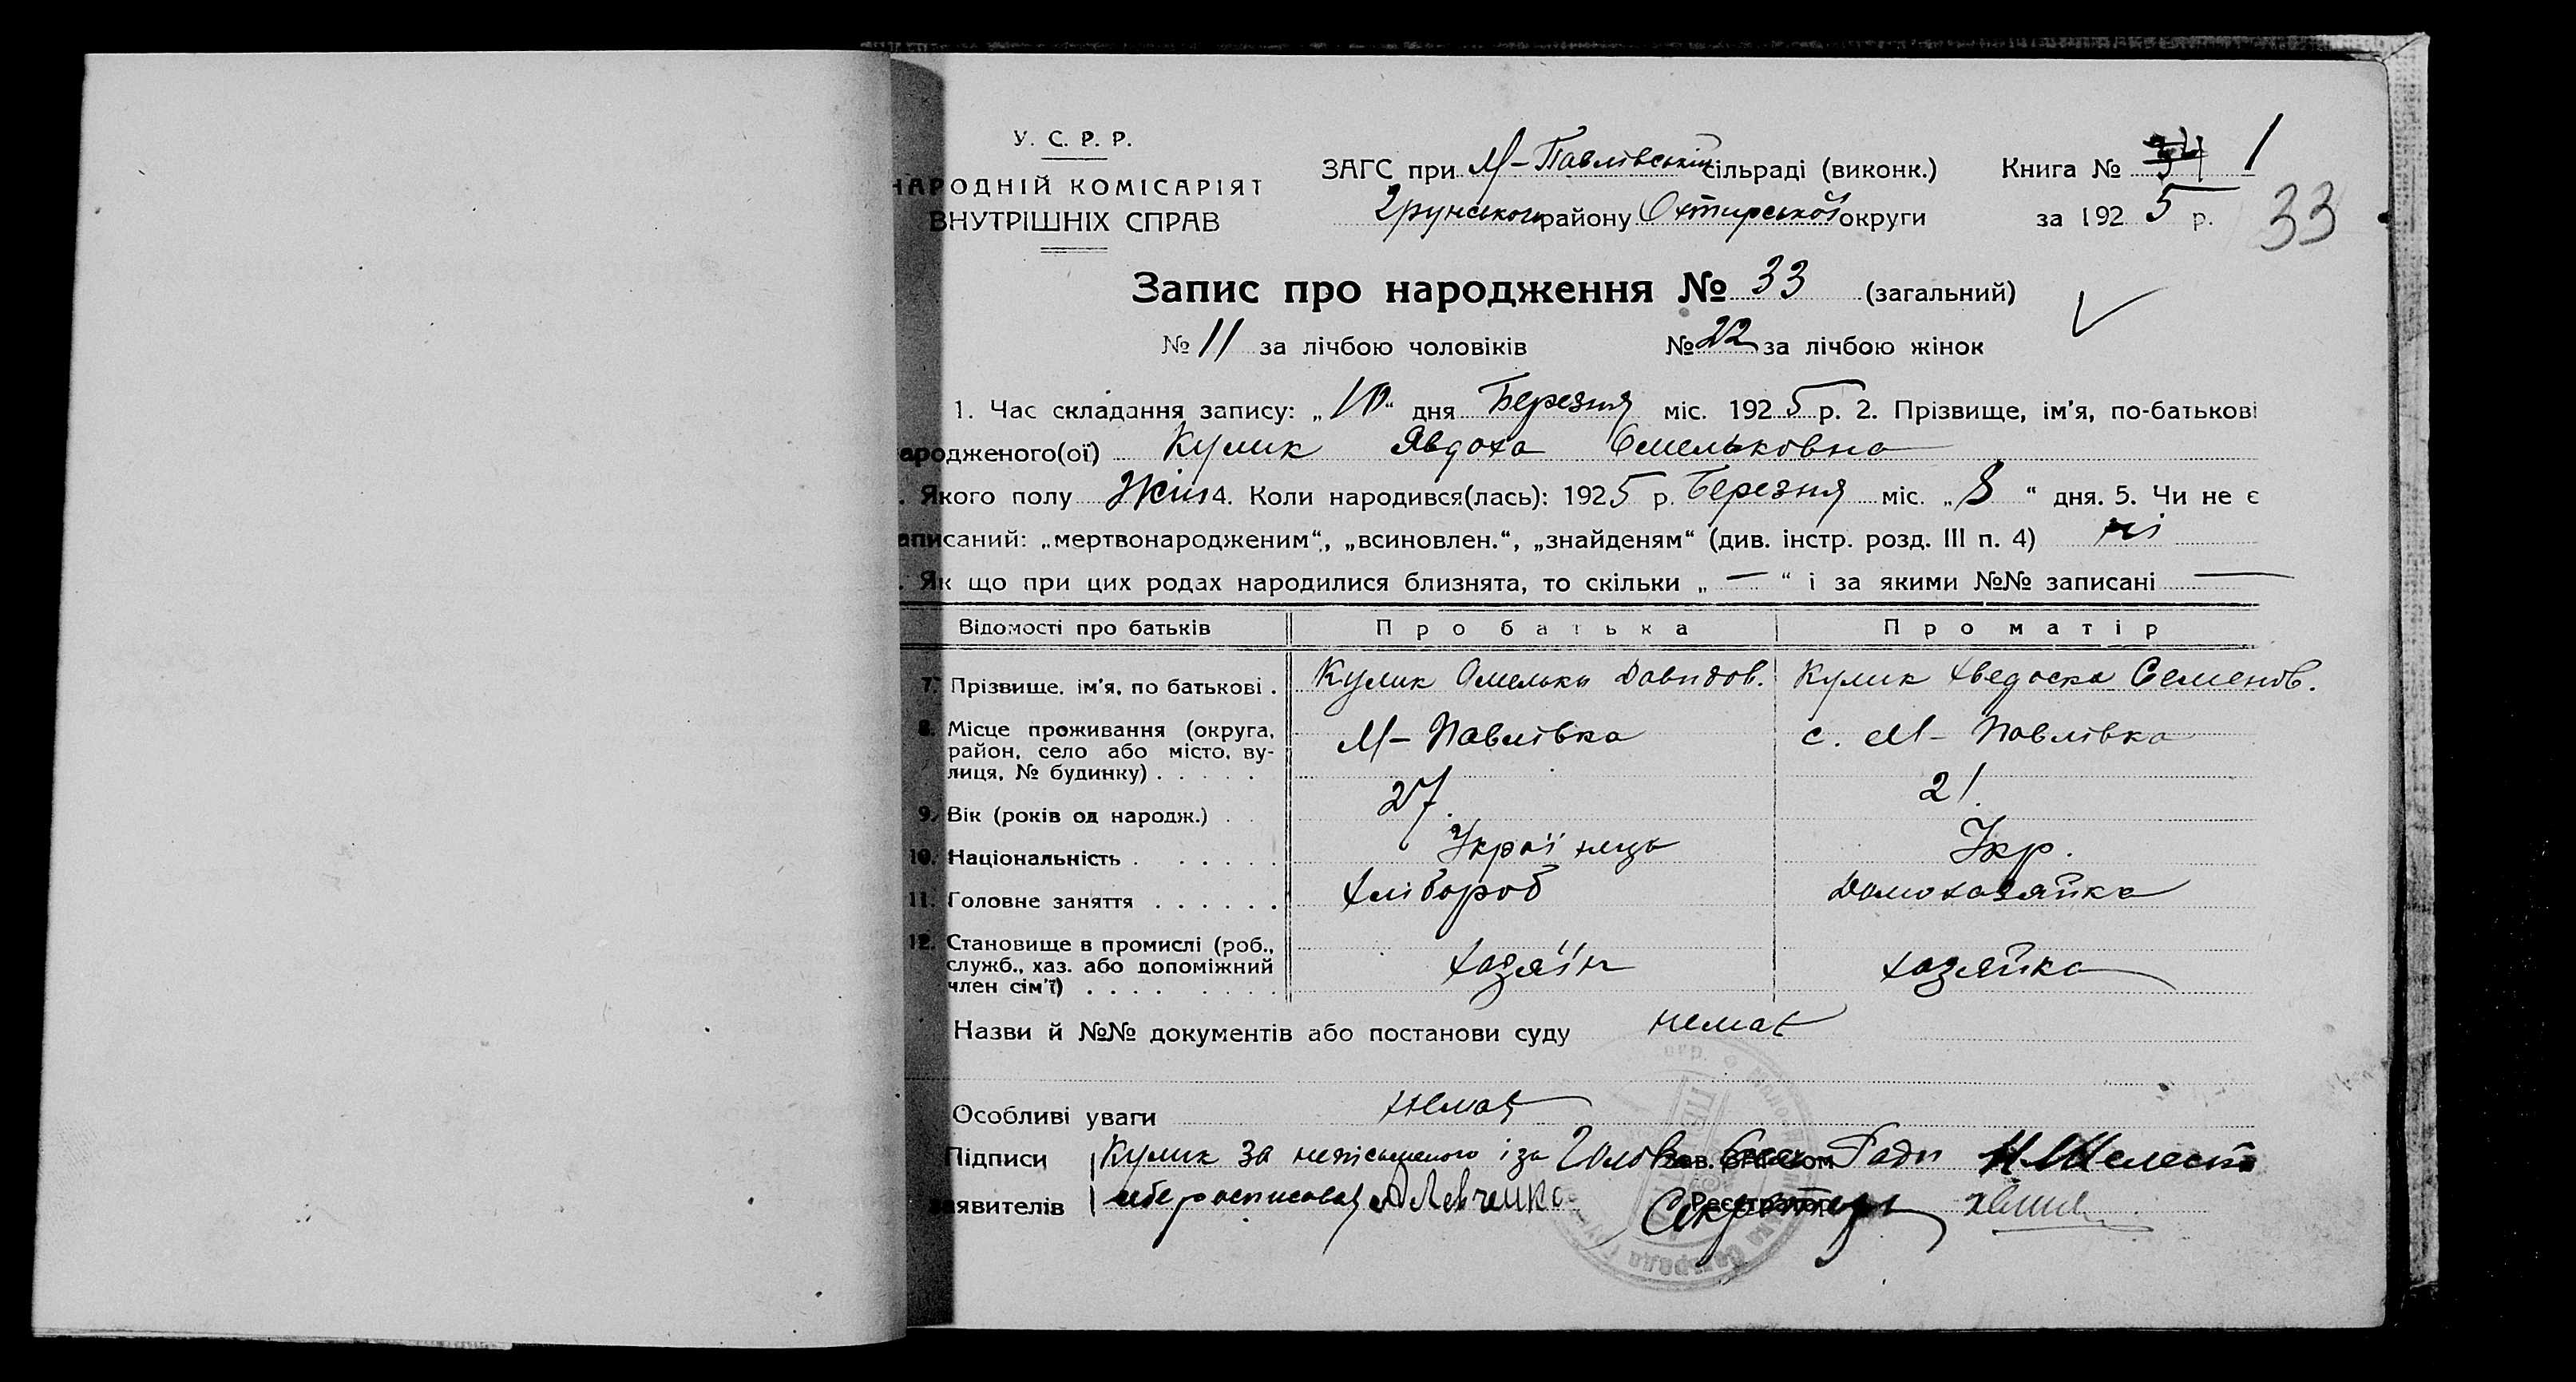 У. С. Р. Р.
НАРОДНІЙ КОМІСАРІЯТ
ВНУТРІШНІХ СПРАВ
ЗАГС при М-Павлівській сільраді (виконк.) Книга № 34 1
Грунського району Охтирської округи за 1925 р. 33
Запис про народження № 33 (загальний)
№ 11 за лічбою чоловіків № 22 за лічбою жінок
1. Час складання запису: „10“ дня Березня міс. 1925 р. 2. Прізвище, ім’я, по-батькові
ародженого(ої) Кулик Явдоха Омельковна
. Якого полу Жін 4. Коли народився(лась): 1925 р. Березня міс. „8“ дня. 5. Чи не є
аписаний: „мертвонародженим“, „всиновлен.“, „знайденям“ (див. інстр. розд. III п. 4) ні
. Як що при цих родах народилися близнята, то скільки „ — “ і за якими №№ записані —
Відомості про батьків Про батька Про матір
7. Прізвище, ім’я, по батькові . Кулик Омелько Давидов. Кулик Хведоска Семенов.
8. Місце проживання (округа, М-Павлівка с. М-Павлівка
район, село або місто, ву-
лиця, № будинку) . . . . .
9. Вік (років од народж.) . . 27. 21.
10. Національність . . . . . . Українець Укр.
11. Головне заняття . . . . . . Хлібороб Домохазяйка
12. Становище в промислі (роб.,
служб., хаз. або допоміжний хазяїн хазяйка
член сім’ї) . . . . . . . .
Назви й №№ документів або постанови суду немає
Особливі уваги немає
Підписи Кулик за неписьменого і за Голова Ради Шелест
заявителів себе росписавсь А Левченко Реєстратор Секретарь